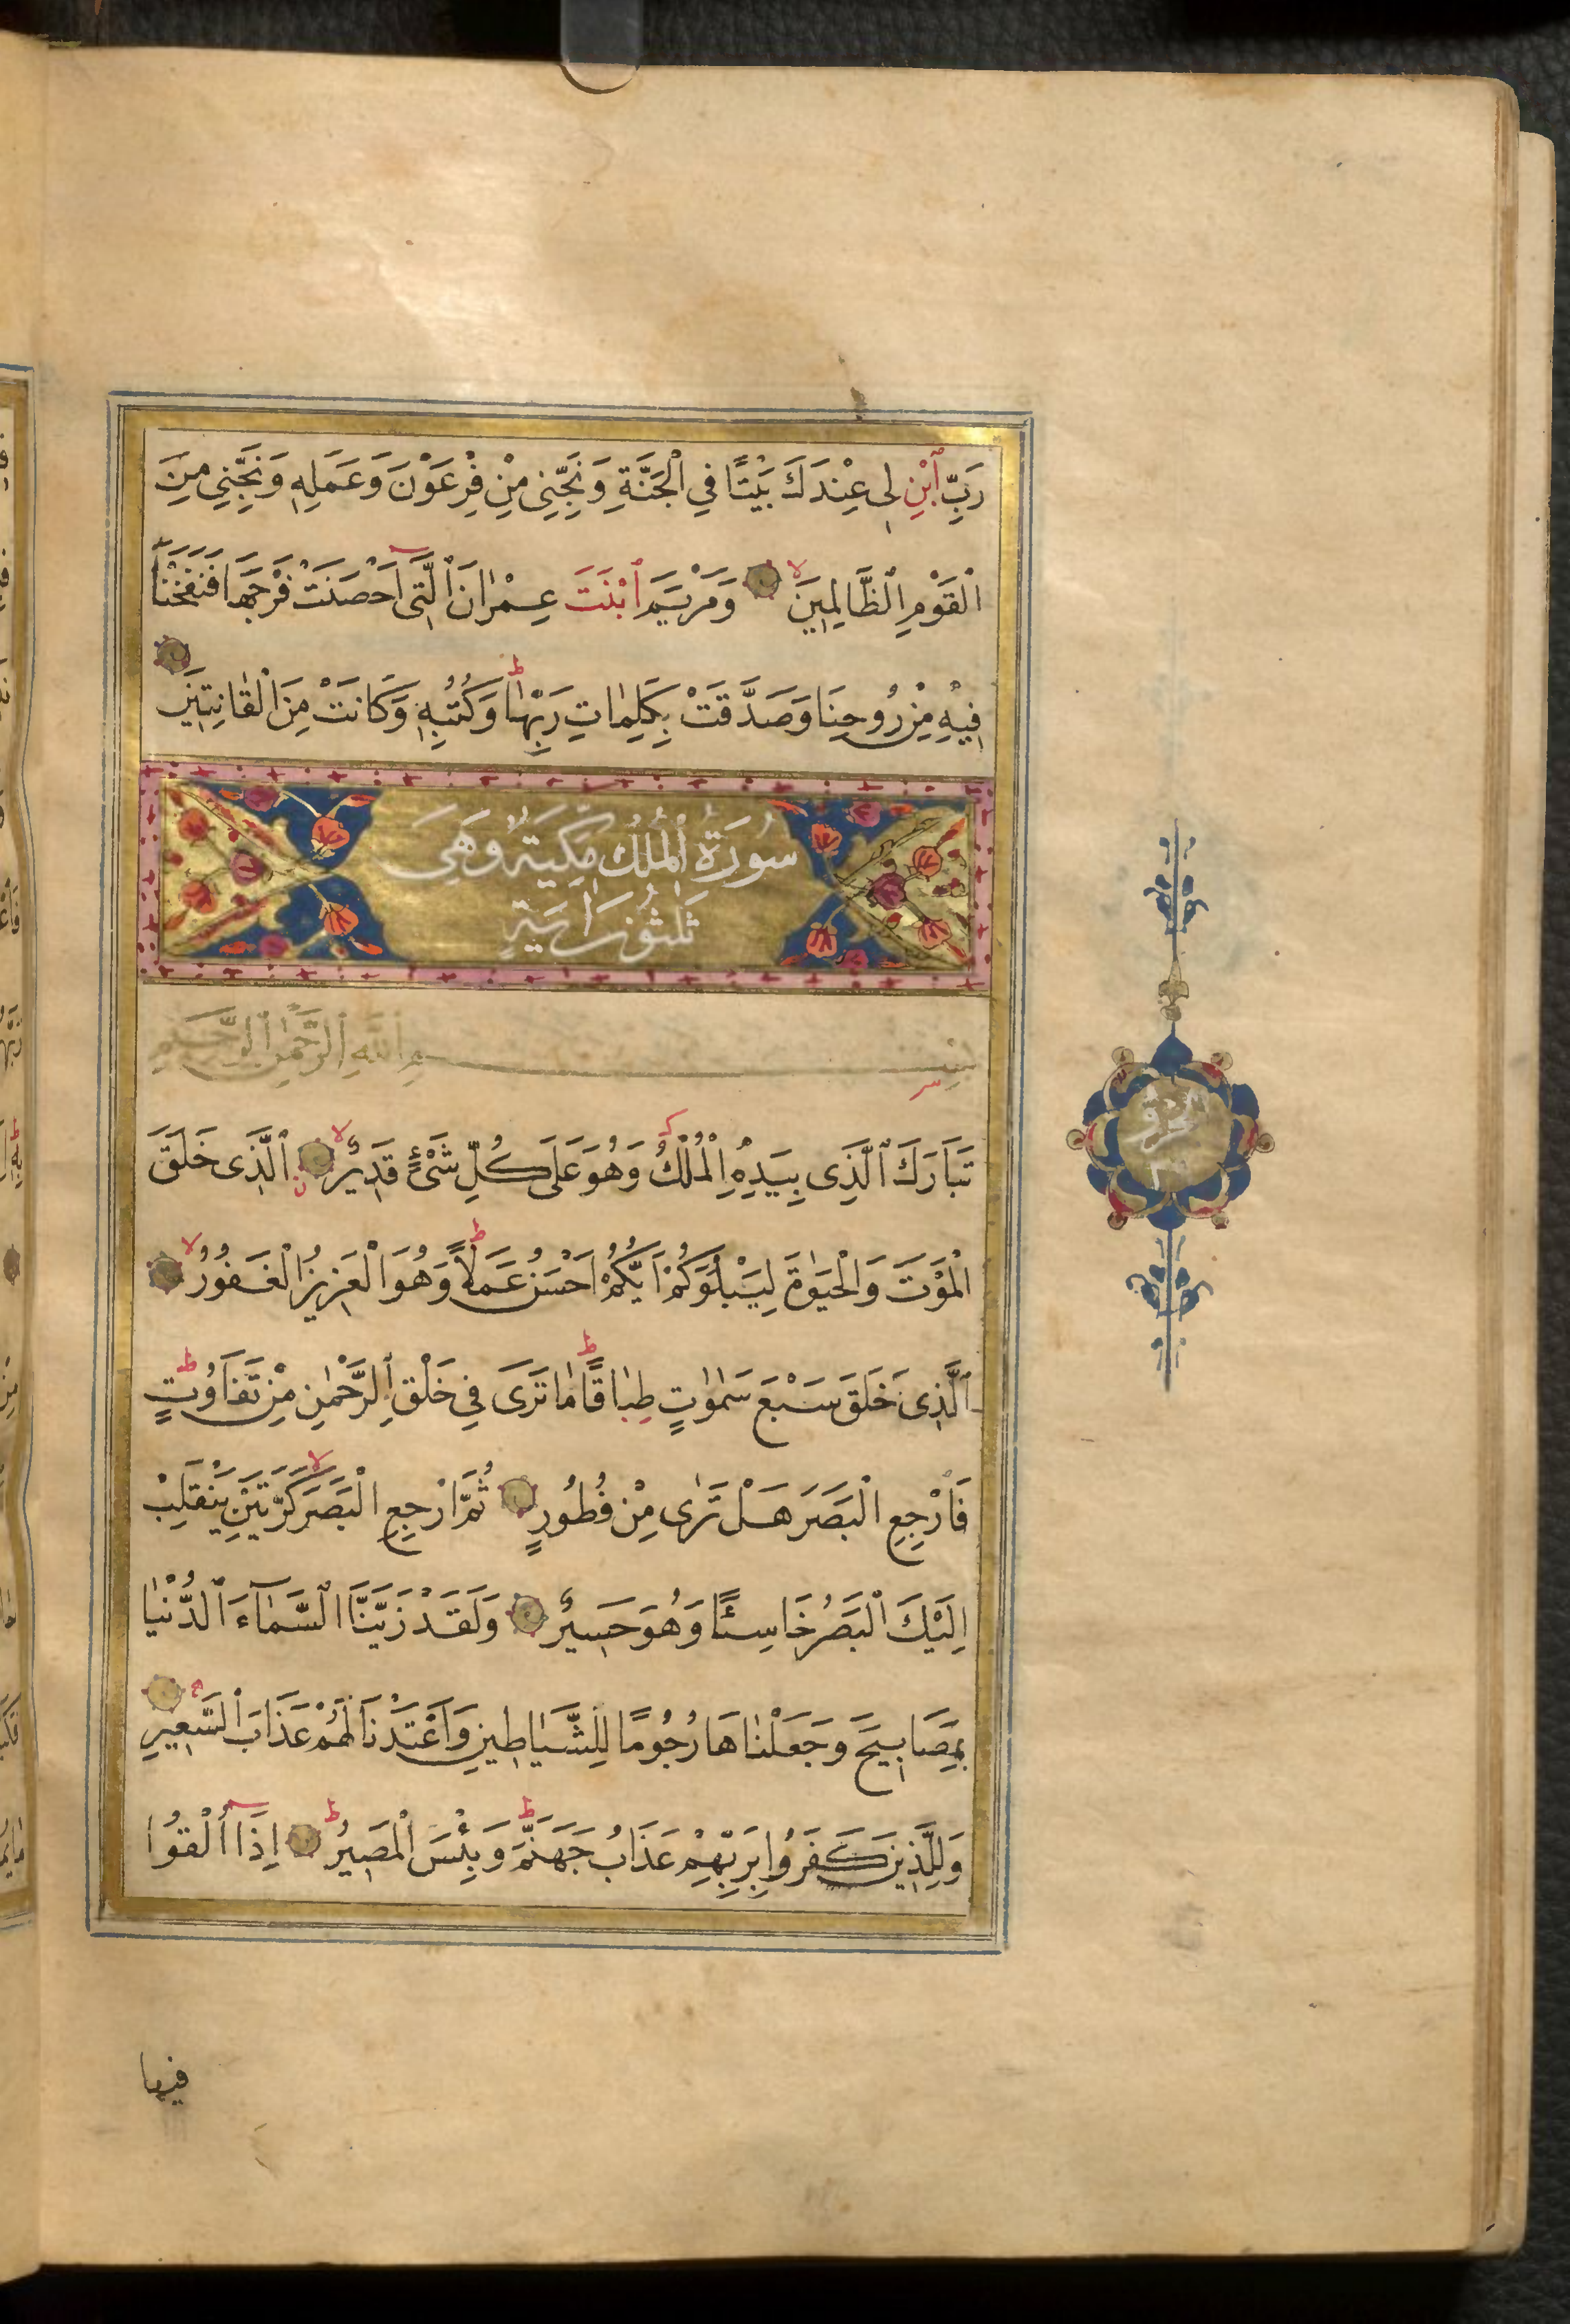 رَبِّ ٱبْنِ لِى عِنْدَكَ بَيْتًا فِي الْجَنَّةِ وَنَجِّنِى مِنْ فِرْعَوْنَ وَعَمَلِهِ وَنَجِّنِى مِنَ
الْقَوْمِ ٱلظَّالِمِينَ لا وَمَرْيَمَ ٱبْنَتَ عِمْرٰانَ ٱلَّتِى اَحْصَنَتْ فَرْجَهَا فَنَفَخْنَا
فِيهِ مِنْ رُوحِنَا وَصَدَّقَتْ بِكَلِمٰاتِ رَبِّهٰا ط وَكُتُبِهِ وَكَانَتْ مِنَ الْقٰانِتِينَ
سُورَةُ الْمُلْكِ مَكِّيَةٌ وَهِىَ
ثَلٰثُونَ اٰيَةً
بِسْمِ اللّٰهِ ٱلرَّحْمٰنِ ٱلرَّحِيمِ
تَبَارَكَ ٱلَّذِى بِيَدِهِ الْمُلْكُ وَهُوَ عَلَى كُلِّ شَىْءٍ قَدِيرٌ لا ٱلَّذِى خَلَقَ
الْمَوْتَ وَالْحَيٰوةَ لِيَبْلُوَكُمْ اَيُّكُمْ اَحْسَنُ عَمَلًا ط وَهُوَ الْعَزِيزُ الْغَفُورُ لا
ٱلَّذِى خَلَقَ سَبْعَ سَمٰوٰتٍ طِبٰاقًا ط مٰا تَرَى فِى خَلْقِ ٱلرَّحْمٰنِ مِنْ تَفَاوُتٍ ط
فَارْجِعِ الْبَصَرَ هَلْ تَرٰى مِنْ فُطُورٍ ثُمَّ ارْجِعِ الْبَصَرَ كَرَّتَيْنِ لا يَنْقَلِبْ
اِلَيْكَ الْبَصَرُ خَاسِئًا وَهُوَ حَسِيرٌ وَلَقَدْ زَيَّنَّا السَّمَآءَ ٱلدُّنْيٰا
بِمَصَابِيحَ وَجَعَلْنٰاهَا رُجُومًا لِلشَّيٰاطِينِ وَاَعْتَدْنَا لَهُمْ عَذَابَ السَّعِيرِ
وَلِلَّذِينَ كَفَرُوا بِرَبِّهِمْ عَذَابُ جَهَنَّمَ ط وَبِئْسَ الْمَصِيرُ ط اِذَا اُلْقُوا
فيها